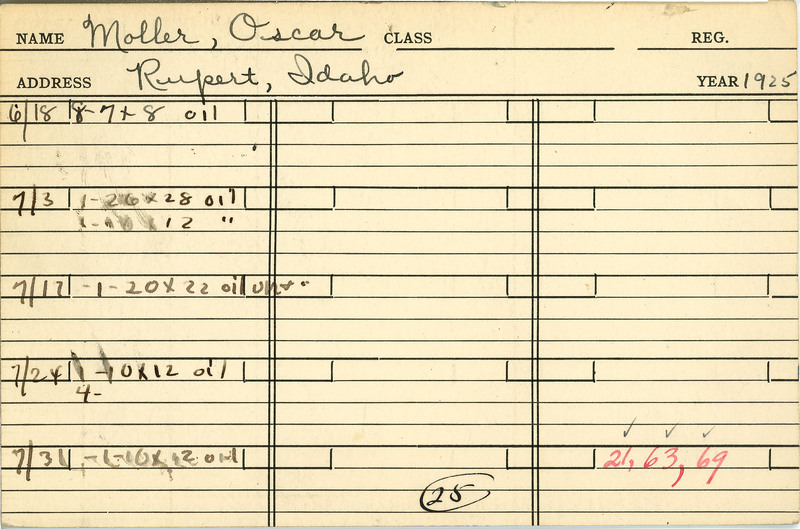 NAME Moller, Oscar CLASS REG.
ADDRESS Rupert, Idaho YEAR 1925
6/18 8-7x8 oil
7/3 1-26x28 oil
12 "
7/17 -1-20x22 oil
7/24 1-10x12 oil
4-
7/31 -1-10x12 oil 21, 63, 69
25